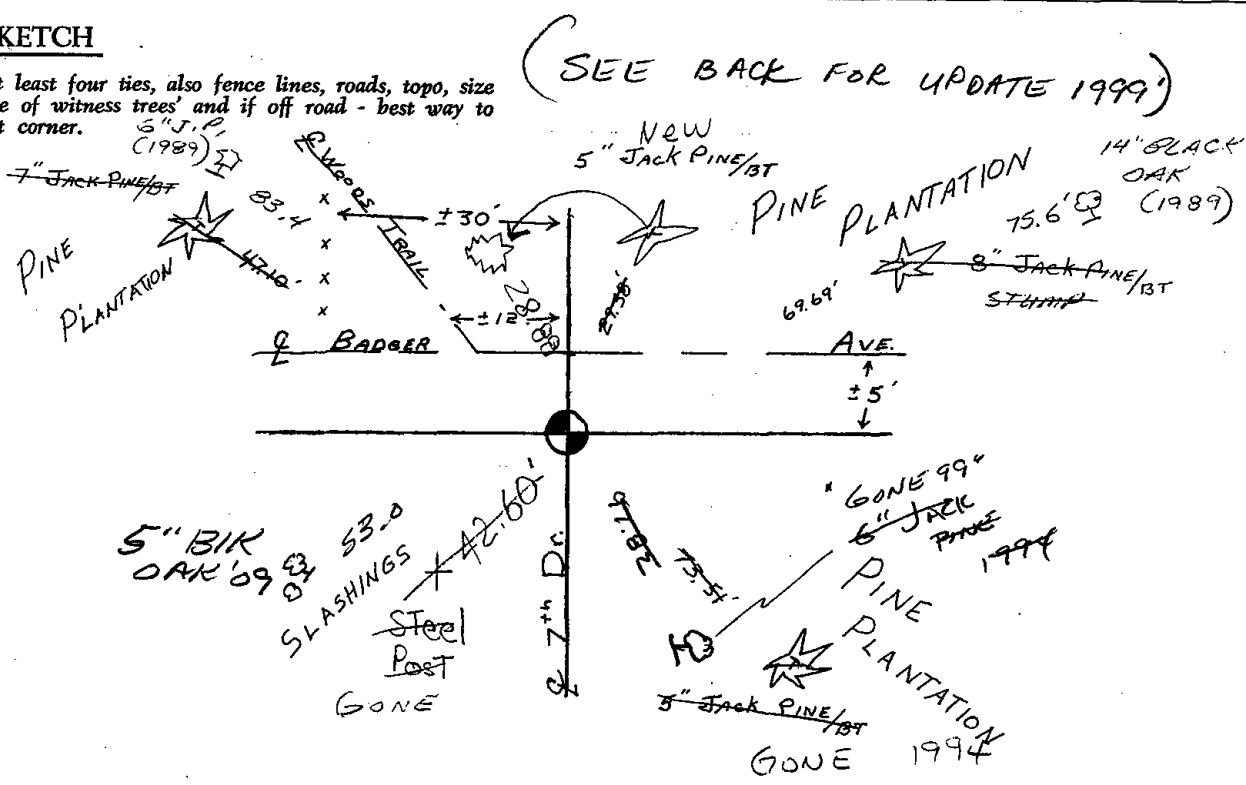 KETCH
(SEE BACK FOR UPDATE 1999')
t least four ties, also fence lines, roads, topo, size
e of witness trees' and if off road - best way to
t corner.
6" J.P.
(1989)
7" JACK PINE/BT
83.4
47.10
PINE
PLANTATION
℄ WOODS
TRAIL
±30'
±12
NEW
5" JACK PINE/BT
28.88
29.38'
PINE
PLANTATION
14" BLACK
OAK
(1989)
75.6'
8" JACK PINE/BT
STUMP
69.69'
℄ BADGER AVE.
±5'
5" BlK
OAK '09
53.0
SLASHINGS
42.60'
STeel
PosT
GONE
℄ 7th Dr.
73.51'
"GONE 99"
6" JACK
PINE
1994
PINE
PLANTATION
5" JACK PINE/BT
GONE 1994